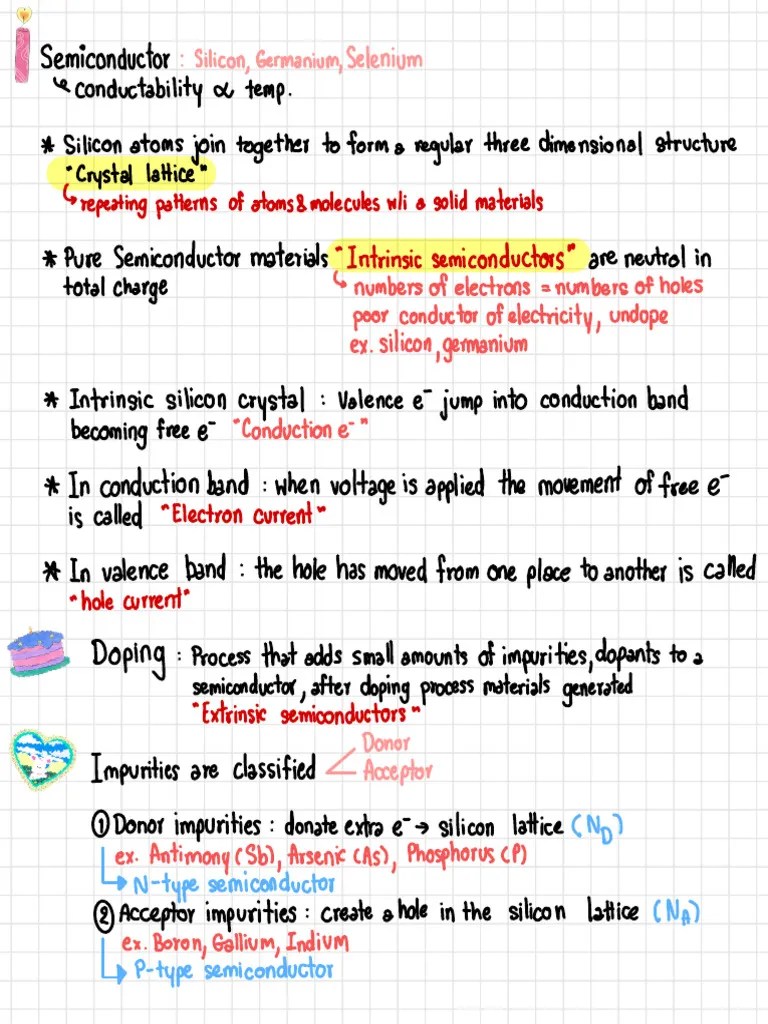 Semiconductor : Silicon, Germanium, Selenium
↳ conductability ∝ temp.
* Silicon atoms join together to form a regular three dimensional structure
"Crystal lattice"
↳ repeating patterns of atoms & molecules w/i a solid materials
* Pure Semiconductor materials "Intrinsic semiconductors" are neutral in
total charge
↳ numbers of electrons = numbers of holes
poor conductor of electricity, undope
ex. silicon, germanium
* Intrinsic silicon crystal : Valence e⁻ jump into conduction band
becoming free e⁻ "Conduction e⁻"
* In conduction band : when voltage is applied the movement of free e⁻
is called "Electron current"
* In valence band : the hole has moved from one place to another is called
"hole current"
Doping : Process that adds small amounts of impurities, dopants to a
semiconductor, after doping process materials generated
"Extrinsic semiconductors"
Donor
Impurities are classified <
Acceptor
① Donor impurities : donate extra e⁻ → silicon lattice (N_D)
ex. Antimony (Sb), Arsenic (As), Phosphorus (P)
↳ N-type semiconductor
② Acceptor impurities : create a hole in the silicon lattice (N_A)
ex. Boron, Gallium, Indium
↳ P-type semiconductor